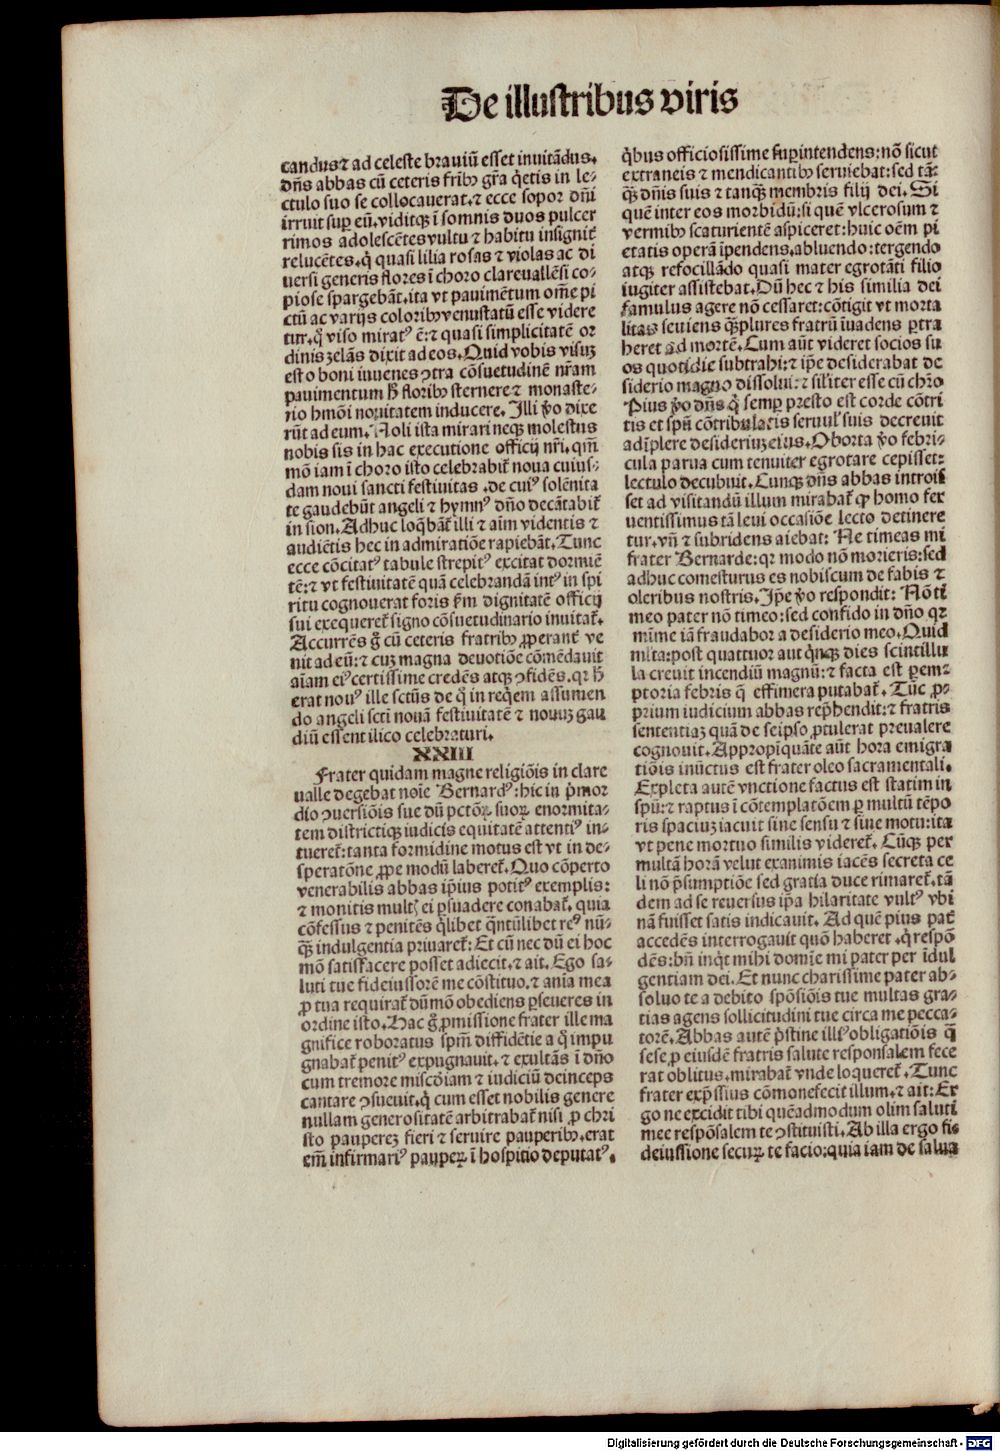 De illustribus viris
candusꝛ ad celeste brauiū esset inuitādus.
dn̄s abbas cū ceteris frib⁹ gr̄a q̄etis in le⸗
ctulo suo se collocauerat.ꝛ ecce sopor dn̄i
irruit suꝑ eū.viditqꝫ ī somnis duos pulcer
rimos adolescētes vultu ꝛ habitu insignit̄
relucētes.q̇ quasi lilia rosas ꝛ violas ac di
uersi generis flores ī choro clareuallēsi co⸗
piose spargebāt.ita vt pauimētum om̄e pi
ctū ac varijs coloribꝫ venustatū esse videre
tur.q̇ viso mirat⁹ ē:ꝛ quasi simplicitatē or
dinis zelās dixit ad eos.Quid vobis visuꝫ
est o boni iuuenes ꝯtra cōsuetudinē nr̄am
pauimentum h̄ floribꝫ sternere ꝛ monaste⸗
rio hmōi nouitatem inducere. Illi v̄o dixe
rūt ad eum.Noli ista mirari neqꝫ molestus
nobis sis in hac executione officij nr̄i.qm̄
mō iam ī choro isto celebrabit̄ noua cuius⸗
dam noui sancti festiuitas .de cui⁹ solēnita
te gaudebūt angeli ꝛ hymn⁹ dn̄o decātabit̄
in sion.Adhuc loq̄bāt̄ illi ꝛ aīm videntis ꝛ
audiētis hec in admiratiōe rapiebāt.Tunc
ecce cōcitat⁹ tabule strepit⁹ excitat dormiē
tē:ꝛ vt festiuitatē quā celebrandā int⁹ in spi
ritu cognouerat foris ẜm dignitatē officij
sui exequeret̄ signo cōsuetudinario inuitat̄.
Accurrēs g̊ cū ceteris fratribꝫ ꝓperant̄ ve
nit ad eū:ꝛ cuꝫ magna deuotiōe cōmēdauit
aīam ei⁹ certissime credēs atqꝫ ꝯfidēs.qꝛ h̄
erat nou⁹ ille sctūs de q̇ in req̄em assumen
do angeli scti nouā festiuitatē ꝛ nouuꝫ gau
diū essent ilico celebraturi.
XXIII
Frater quidam magne religiōis in clare
ualle degebat noīe Bernard⁹:hic in p̄mor
dio ꝯuersiōis sue dū pctōꝝ suoꝝ enormita⸗
tem districtiqꝫ iudicis equitatē attenti⁹ in⸗
tueret̄:tanta formidine motus est vt in de⸗
speratōne ꝓpe modū laberet̄.Quo cōperto
venerabilis abbas ip̄ius potit⁹ exemplis:
ꝛ monitis mult⁊ ei ꝑsuadere conabat̄.quia
cōfessus ꝛ penitēs q̄libet q̄ntūlibet re⁹ nū⸗
q̄ꝫ indulgentia priuaret̄:Et cū nec dū ei hoc
mō satisfacere posset adiecit.ꝛ ait. Ego sa⸗
luti tue fideiussorē me cōstituo.ꝛ aīa mea
ꝓ tua requirat̄ dūmō obediens ꝑseueres in
ordine isto.Hac g̊ ꝓmissione frater ille ma
gnifice roboratus spm̄ diffidētie a q̇ impu
gnabat̄ penit⁹ expugnauit.ꝛ exultās ī dn̄o
cum tremore miscōiam ꝛ iudiciū deinceps
cantare ꝯsueuit.q̇ cum esset nobilis genere
nullam generositatē arbitrabat̄ nisi ꝓ chri
sto paupereꝫ fieri ꝛ seruire pauperibꝫ.erat
em̄ infirmari⁹ pauꝑeꝝ ī hospitio deputat⁹.
q̇bus officiosissime suꝑintendens:nō sicut
extraneis ꝛ mendicantibꝫ seruiebat:sed tā⸗
q̄ꝫ dn̄is suis ꝛ tanq̄ꝫ membris filij dei. Si
quē inter eos morbidū:si quē vlcerosum ꝛ
vermibꝫ scaturientē aspiceret:huic oēm pi
etatis operā īpendens.abluendo:tergendo
atqꝫ refocillādo quasi mater egrotāti filio
iugiter assistebat. Dū hec ꝛ his similia dei
famulus agere nō cessaret:cōtigit vt morta
litas seuiens q̄ꝫplures fratrū īuadens ꝑtra
heret ad mortē.Cum aūt videret socios su
os quotidie subtrahi:ꝛ ip̄e desiderabat de
siderio magno dissolui:ꝛ sil̄iter esse cū chr̄o
Pius v̄o dn̄s q̇ semꝑ presto est corde cōtri
tis et spū cōtribulatis seruul⁹ suis decreuit
adīplere desideriuꝫ eius.Oborta v̄o febri⸗
cula parua cum tenuiter egrotare cepisset:
lectulo decubuit.Cunqꝫ dn̄s abbas introis
set ad visitandū illum mirabat̄ ꝙ homo fer
uentissimus tā leui occasiōe lecto detinere
tur.vn̄ ꝛ subridens aiebat: Ne timeas mi
frater Bernarde:qꝛ modo nō morieris:sed
adhuc comesturus es nobiscum de fabis ꝛ
oleribus nostris.Ip̄e v̄o respondit: Nō ti
meo pater nō timeo:sed confido in dn̄o qꝛ
mīme iā fraudabor a desiderio meo.Quid
ml̄ta:post quattuor aut q̄nqꝫ dies scintillu
la creuit incendiū magnū:ꝛ facta est ꝑem⸗
ptoria febris q̄ effimera putabat̄. Tūc ꝓ⸗
prium iudicium abbas rep̄hendit:ꝛ fratris
sententiaꝫ quā de seipso ꝓtulerat preualere
cognouit.Appropīquāte aūt hora emigra
tiōis inūctus est frater oleo sacramentali.
Expleta autē vnctione factus est statim in
spū:ꝛ raptus ī cōtemplatōem ꝑ multū tēpo
ris spaciuꝫ iacuit sine sensu ꝛ sine motu:ita
vt pene mortuo similis videret̄. Cūqꝫ per
multā horā velut exanimis iacēs secreta ce
li nō p̄sumptiōe sed gratia duce rimaret̄.tā
dem ad se reuersus ip̄a hilaritate vult⁹ vbi
nā fuisset satis indicauit. Ad quē pius pat̄
accedēs interrogauit quō haberet .q̇ respō
dēs:bn̄ inq̇t mihi domīe mi pater per īdul
gentiam dei.Et nunc charissime pater ab⸗
soluo te a debito spōsiōis tue multas gra⸗
tias agens sollicitudini tue circa me pecca⸗
torē.Abbas autē p̄stine ill⁹ obligatiōis q̄
sese ꝓ eiusdē fratris salute responsalem fece
rat oblitus.mirabat̄ vnde loqueret̄.Tunc
frater exp̄ssius cōmonefecit illum.ꝛ ait:Er
go ne excidit tibi quēadmodum olim saluti
mee respōsalem te ꝯstituisti.Ab illa ergo fi⸗
deiussione securꝝ te facio:quia iam de salua
Digitalisierung gefördert durch die Deutsche Forschungsgemeinschaft - DFG